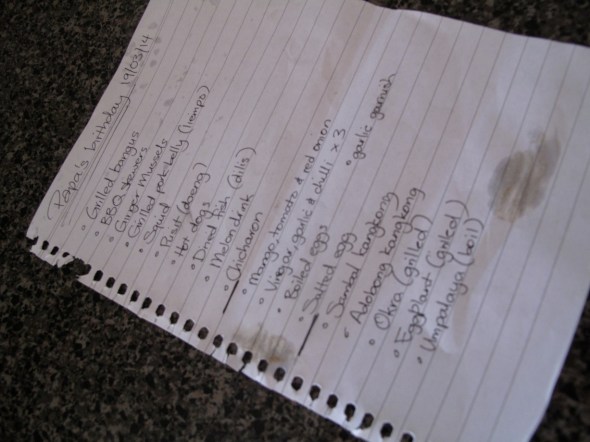 Papa's birthday 19/03/14
Grilled bangus
BBQ skewers
Ginger Mussels
Grilled pork belly (liempo)
Squid
Pusit (daeng)
Hot dogs
Dried fish (dilis)
Melon drink
Chicharon
Mango, tomato & red onion
Vinegar, garlic & chilli x 3
Boiled eggs
Salted egg
garlic garnish
Sauteed kangkong
Adobong kangkong
Okra (grilled)
EggPlant (grilled)
Umpalaya (boil)